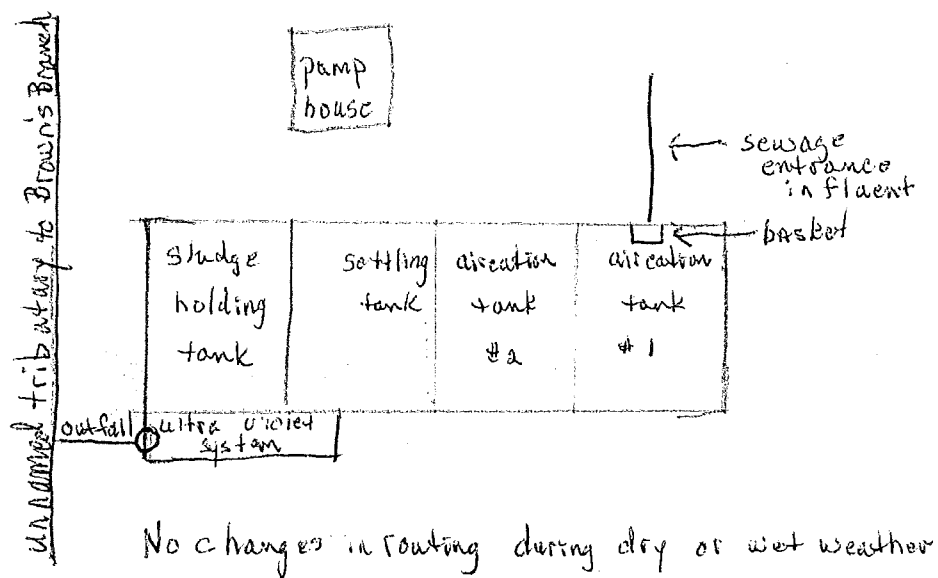 unnamed tributary to Brown's Branch
pump
house
sewage
entrance
influent
basket
sludge
holding
tank
settling
tank
aireation
tank
#2
aireation
tank
#1
outfall
ultra violet
system
No changes in routing during dry or wet weather